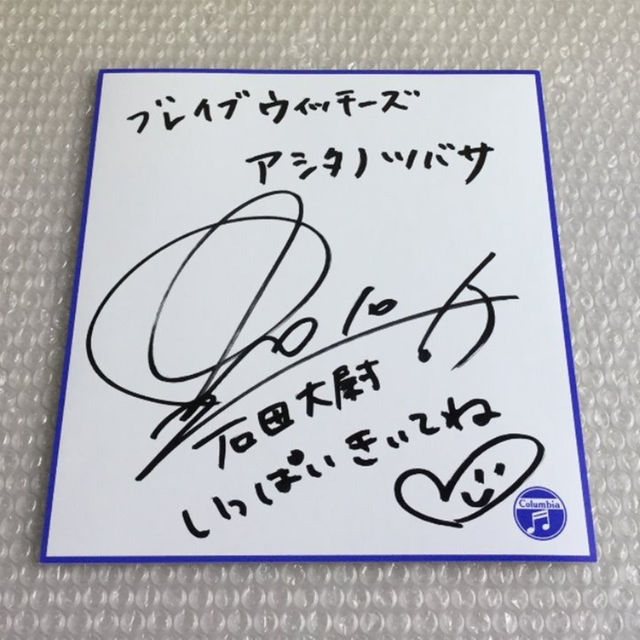 ブレイブウィッチーズ
アシタノツバサ
石田大尉
いっぱいきいてね
Columbia